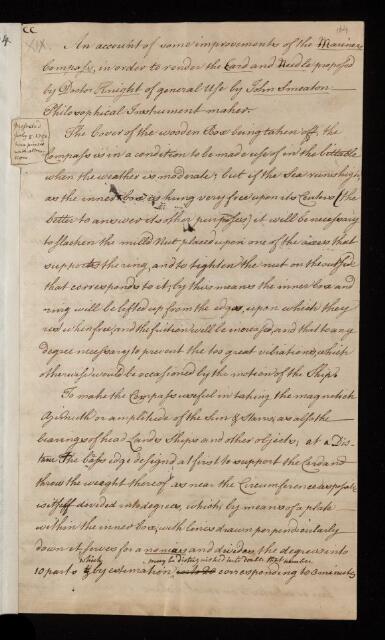 CC
XIX
184
An account of some improvements of the Mariners
Compass, in order to render the Card and Needle proposed
by Doctor Knight of general Use by John Smeaton
Philosophical Instrument maker.
Presented
July 5. 1750
The Cover of the wooden Box being taken off, the
Compass is in a condition to be made use of in the bittakle
when the weather is moderate; but if the Sea runs high
as the inner box is hung very free upon its Centers (the
better to answer its other purposes) it will be necessary
to slacken the mill'd Nut placed upon one of the axes that
supports the ring, and to tighten the nut on the outside
that corresponds to it; by this means the inner box and
ring will be lifted up from the edges, upon which they
rest when free; and the friction will be increased, and that to any
degree necessary to prevent the too great vibrations, which
otherwise would be occasioned by the motion of the Ship.
To make the Compass useful in taking the magnetick
Azimuth or amplitude of the Sun & Stars, as also the
bearings of head Lands Ships and other objects, at a Dis-
tance the brass edge design'd at first to support the Card and
throw the weight thereof as near the Circumference as possible
is itself divided into degrees, which by means of a plate
within the inner box, with lines drawn perpendicularly
down it serves for a nonius and divides the degrees into
may be distinguished into double that number
10 parts & by estimation corresponding to 3 minutes